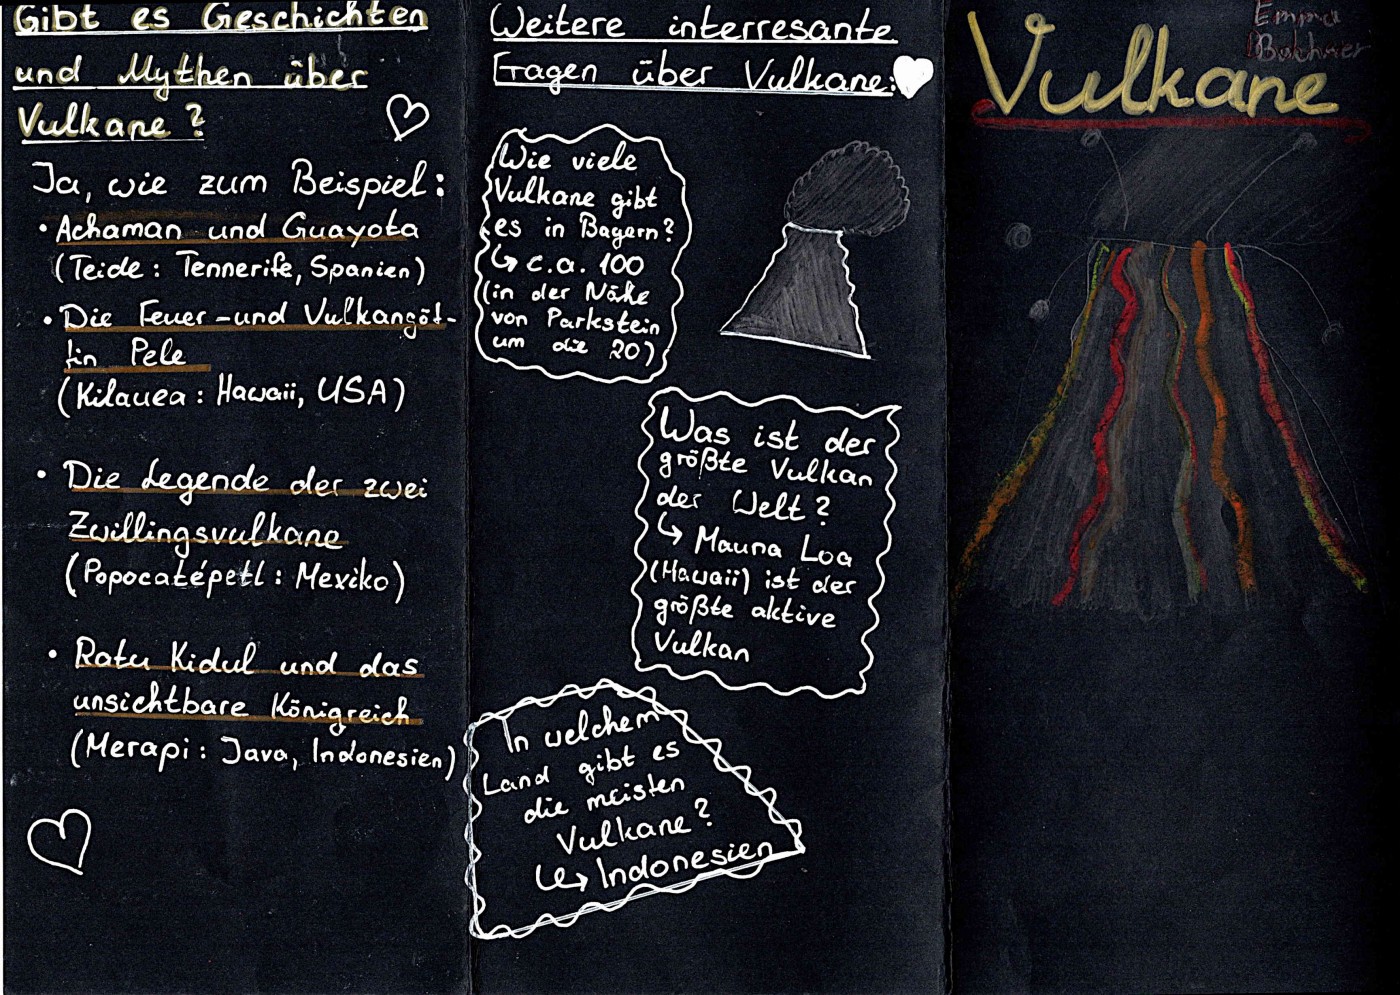 Gibt es Geschichten
und Mythen über
Vulkane?
Ja, wie zum Beispiel:
• Achaman und Guayota
(Teide: Tennerife, Spanien)
• Die Feuer-und Vulkangöt-
tin Pele
(Kilauea: Hawaii, USA)
• Die Legende der zwei
Zwillingsvulkane
(Popocatépetl: Mexiko)
• Ratu Kidul und das
unsichtbare Königreich
(Merapi: Java, Indonesien)
Weitere interresante
Fragen über Vulkane:
Wie viele
Vulkane gibt
es in Bayern?
↳ c.a. 100
(in der Nähe
von Parkstein
um die 20)
Was ist der
größte Vulkan
der Welt?
↳ Mauna Loa
(Hawaii) ist der
größte aktive
Vulkan
In welchem
Land gibt es
die meisten
Vulkane?
↳ Indonesien
Emma
Vulkane